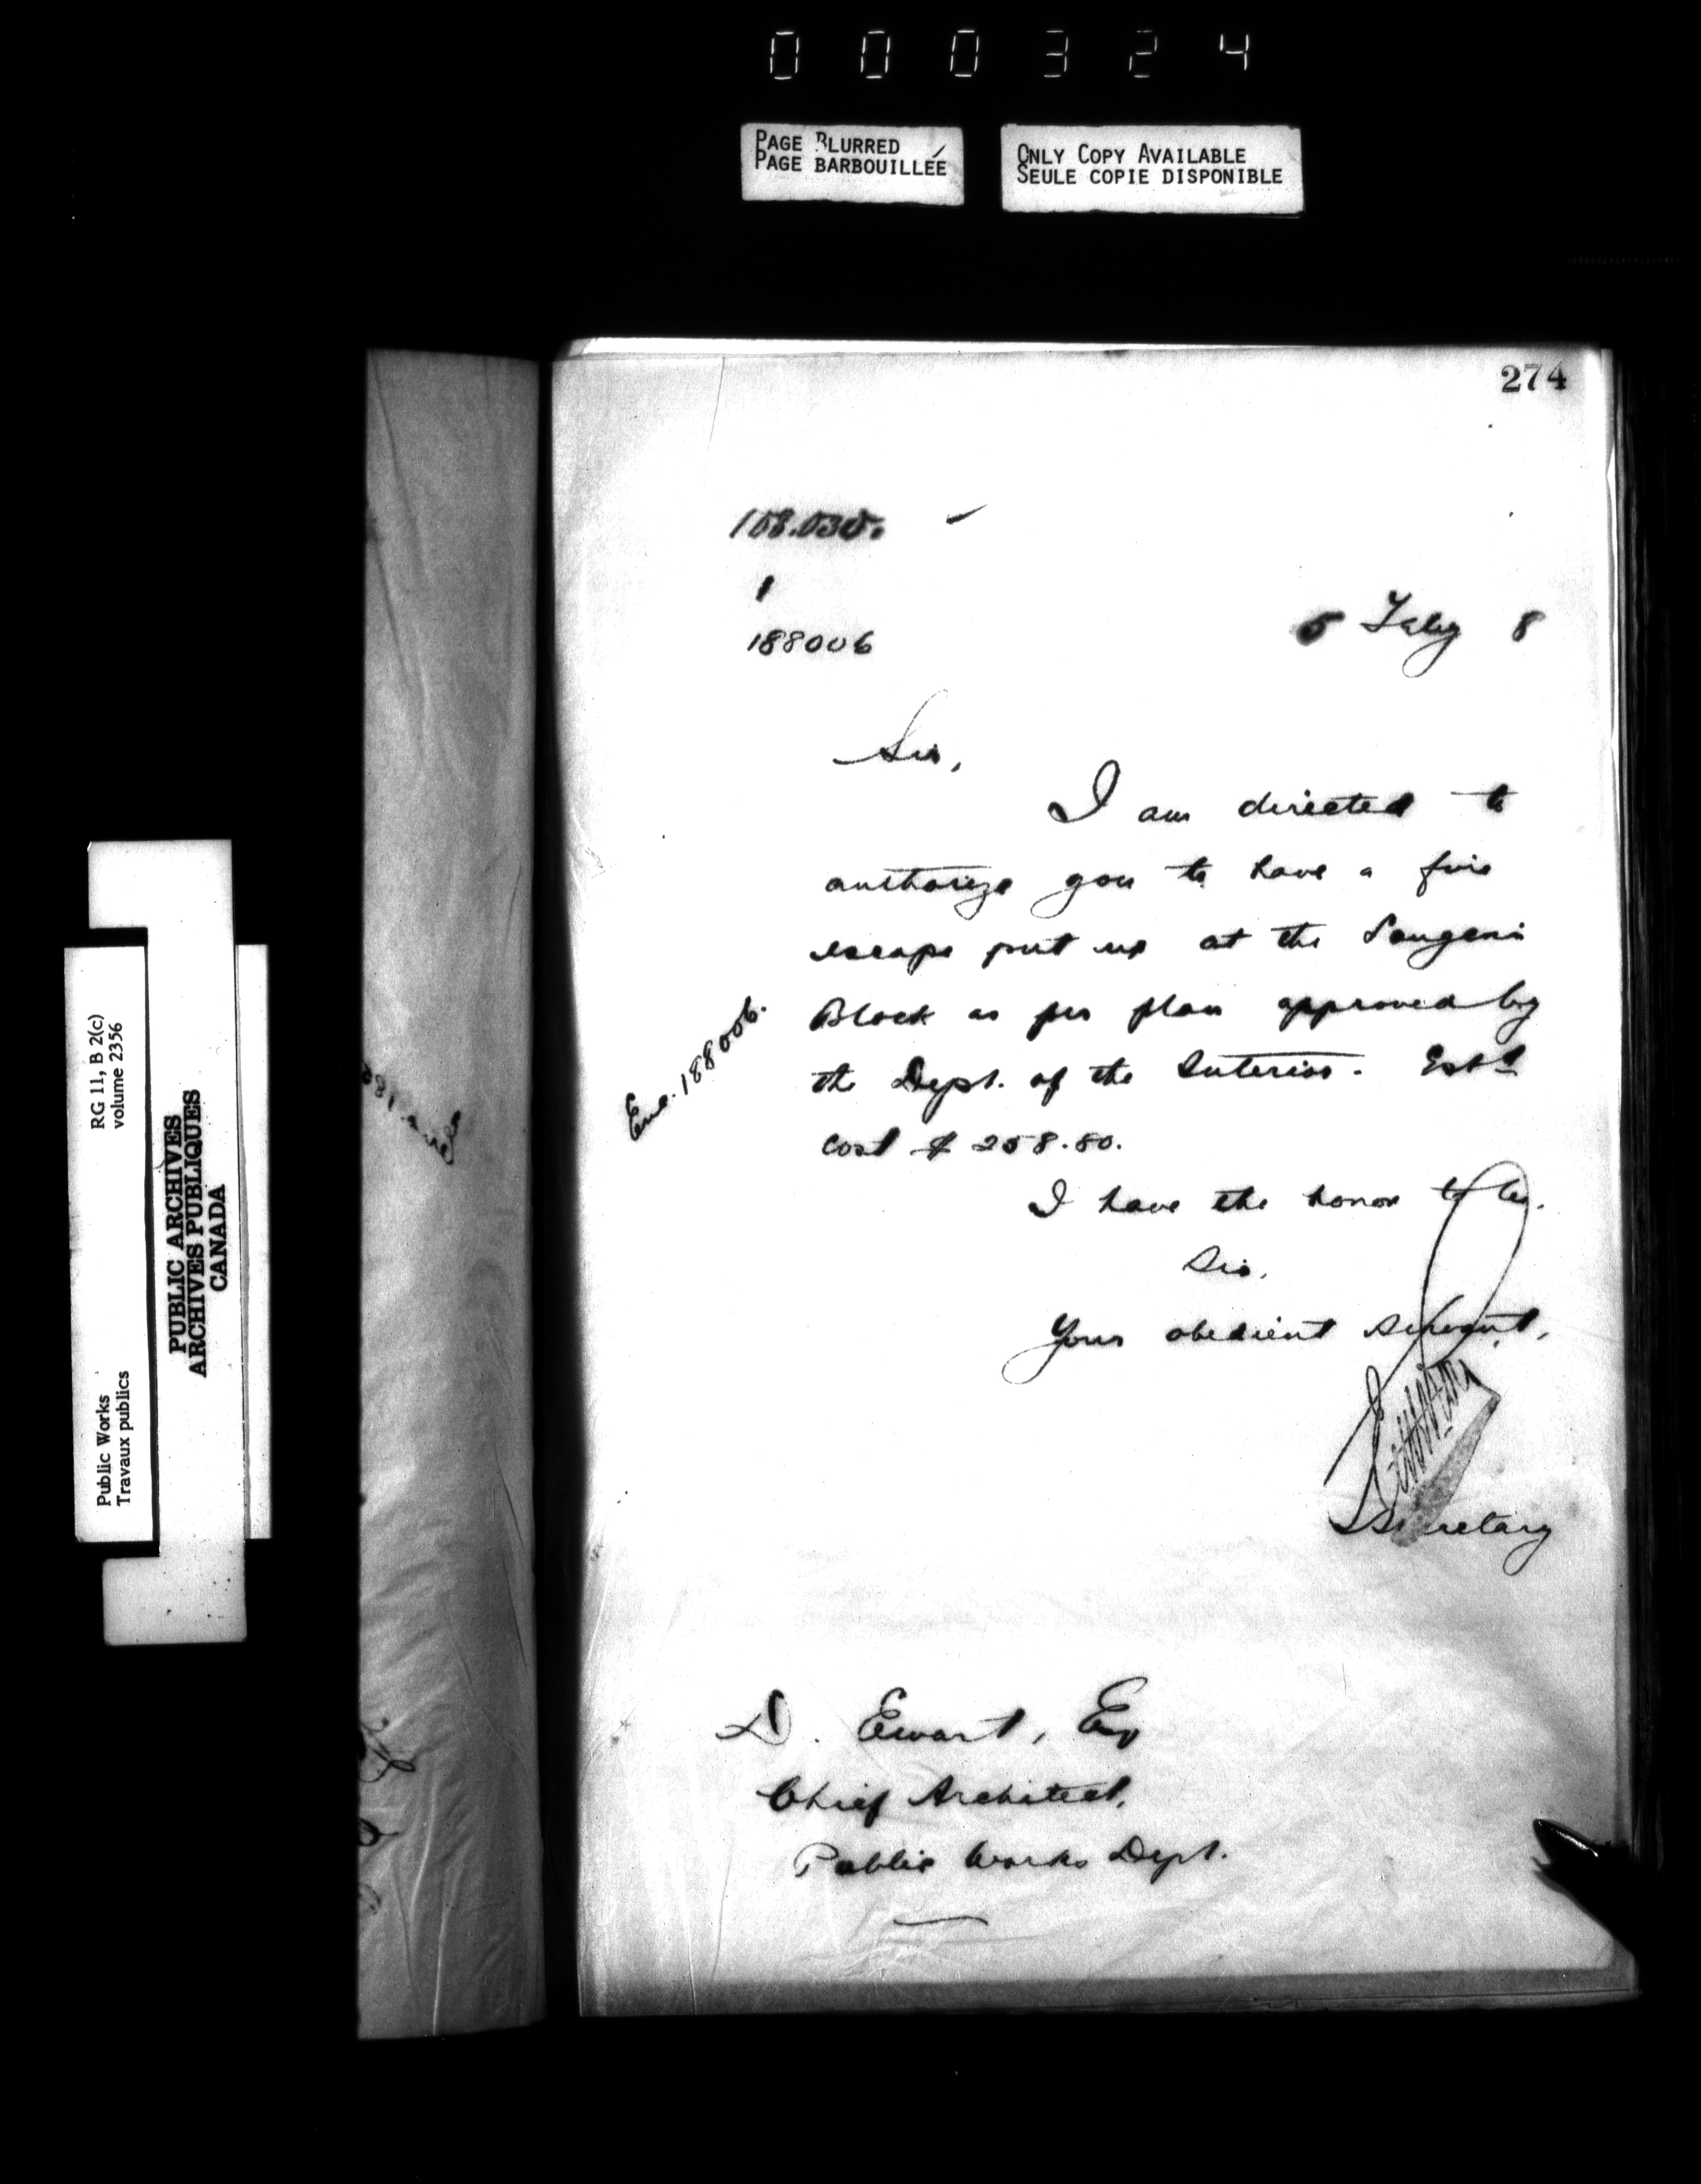 000324
PAGE BLURRED
PAGE BARBOUILLÉE
ONLY COPY AVAILABLE
SEULE COPIE DISPONIBLE
274
1
188006
5 Feby 8
Sir,
I am directed to
authorize you to have a fire
escape put up at the
Block as per plan approved by
the Dept. of the Interior. Estd
cost $258.80.
Enc. 188006.
I have the honor to be.
Sir,
Your obedient servant,
Secretary
D. Ewart, Esq
Chief Architect,
Public Works Dept.
RG 11, B 2(c)
volume 2356
Public Works
Travaux publics
PUBLIC ARCHIVES
ARCHIVES PUBLIQUES
CANADA